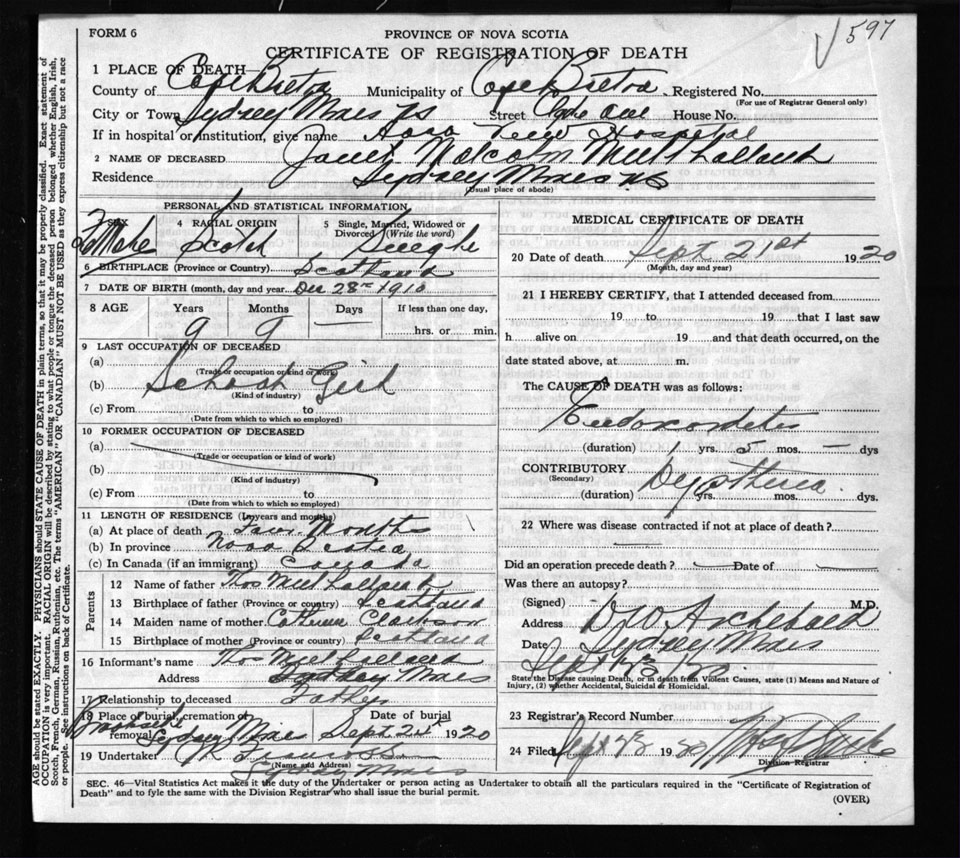 FORM 6
PROVINCE OF NOVA SCOTIA
597
CERTIFICATE OF REGISTRATION OF DEATH
1 PLACE OF DEATH
County of Cape Breton Municipality of Cape Breton Registered No.
(For use of Registrar General only)
City or Town Sydney Mines NS Street Clyde Ave House No.
If in hospital or institution, give name Hospital
2 NAME OF DECEASED Janet Malcolm
Residence Sydney Mines NS
(Usual place of abode)
PERSONAL AND STATISTICAL INFORMATION
SEX Female 4 RACIAL ORIGIN Scotch 5 Single, Married, Widowed or Divorced (Write the word) Single
6 BIRTHPLACE (Province or Country) Scotland
7 DATE OF BIRTH (month, day and year) Dec 28th 1910
8 AGE Years 9 Months 9 Days — If less than one day, hrs. or min.
9 LAST OCCUPATION OF DECEASED
(a)
(Trade or occupation or kind of work)
(b) School Girl
(Kind of industry)
(c) From to
(Date from which to which so employed)
10 FORMER OCCUPATION OF DECEASED
(a)
(Trade or occupation or kind of work)
(b)
(Kind of industry)
(c) From to
(Date from which to which so employed)
11 LENGTH OF RESIDENCE (In years and months)
(a) At place of death Months
(b) In province Nova Scotia
(c) In Canada (if an immigrant) Canada
Parents
12 Name of father Thos
13 Birthplace of father (Province or country) Scotland
14 Maiden name of mother Catherine
15 Birthplace of mother (Province or country) Scotland
16 Informant's name Thos
Address Sydney Mines
17 Relationship to deceased Father
18 Place of burial, cremation or removal Sydney Mines Date of burial Sept 1920
19 Undertaker
(Name and Address)
Sydney Mines
MEDICAL CERTIFICATE OF DEATH
20 Date of death Sept 21st 1920
(Month, day and year)
21 I HEREBY CERTIFY, that I attended deceased from
19 to 19 that I last saw
h alive on 19 and that death occurred, on the
date stated above, at m.
The CAUSE OF DEATH was as follows:
Endocarditis
(duration) 1 yrs. 5 mos. — dys
CONTRIBUTORY Diptheria
(Secondary)
(duration) yrs. mos. dys.
22 Where was disease contracted if not at place of death?
Did an operation precede death? Date of
Was there an autopsy?
(Signed) D W Archibald M.D.
Address Sydney Mines
Date Sept
State the Disease causing Death, or in death from Violent Causes, state (1) Means and Nature of
Injury, (2) whether Accidental, Suicidal or Homicidal.
23 Registrar's Record Number
24 Filed Sept 1920
Division Registrar
SEC. 46—Vital Statistics Act makes it the duty of the Undertaker or person acting as Undertaker to obtain all the particulars required in the "Certificate of Registration of
Death" and to fyle the same with the Division Registrar who shall issue the burial permit.
(OVER)
AGE should be stated EXACTLY. PHYSICIANS should STATE CAUSE OF DEATH in plain terms, so that it may be properly classified. Exact statement of
OCCUPATION is very important. RACIAL ORIGIN will be described by stating to what people or tongue the deceased person belonged whether English, Irish,
Scotch, French, German, Russian, Ruthenian, etc. The terms "AMERICAN" OR "CANADIAN" MUST NOT BE USED as they express citizenship but not a race
or people. See instructions on back of Certificate.